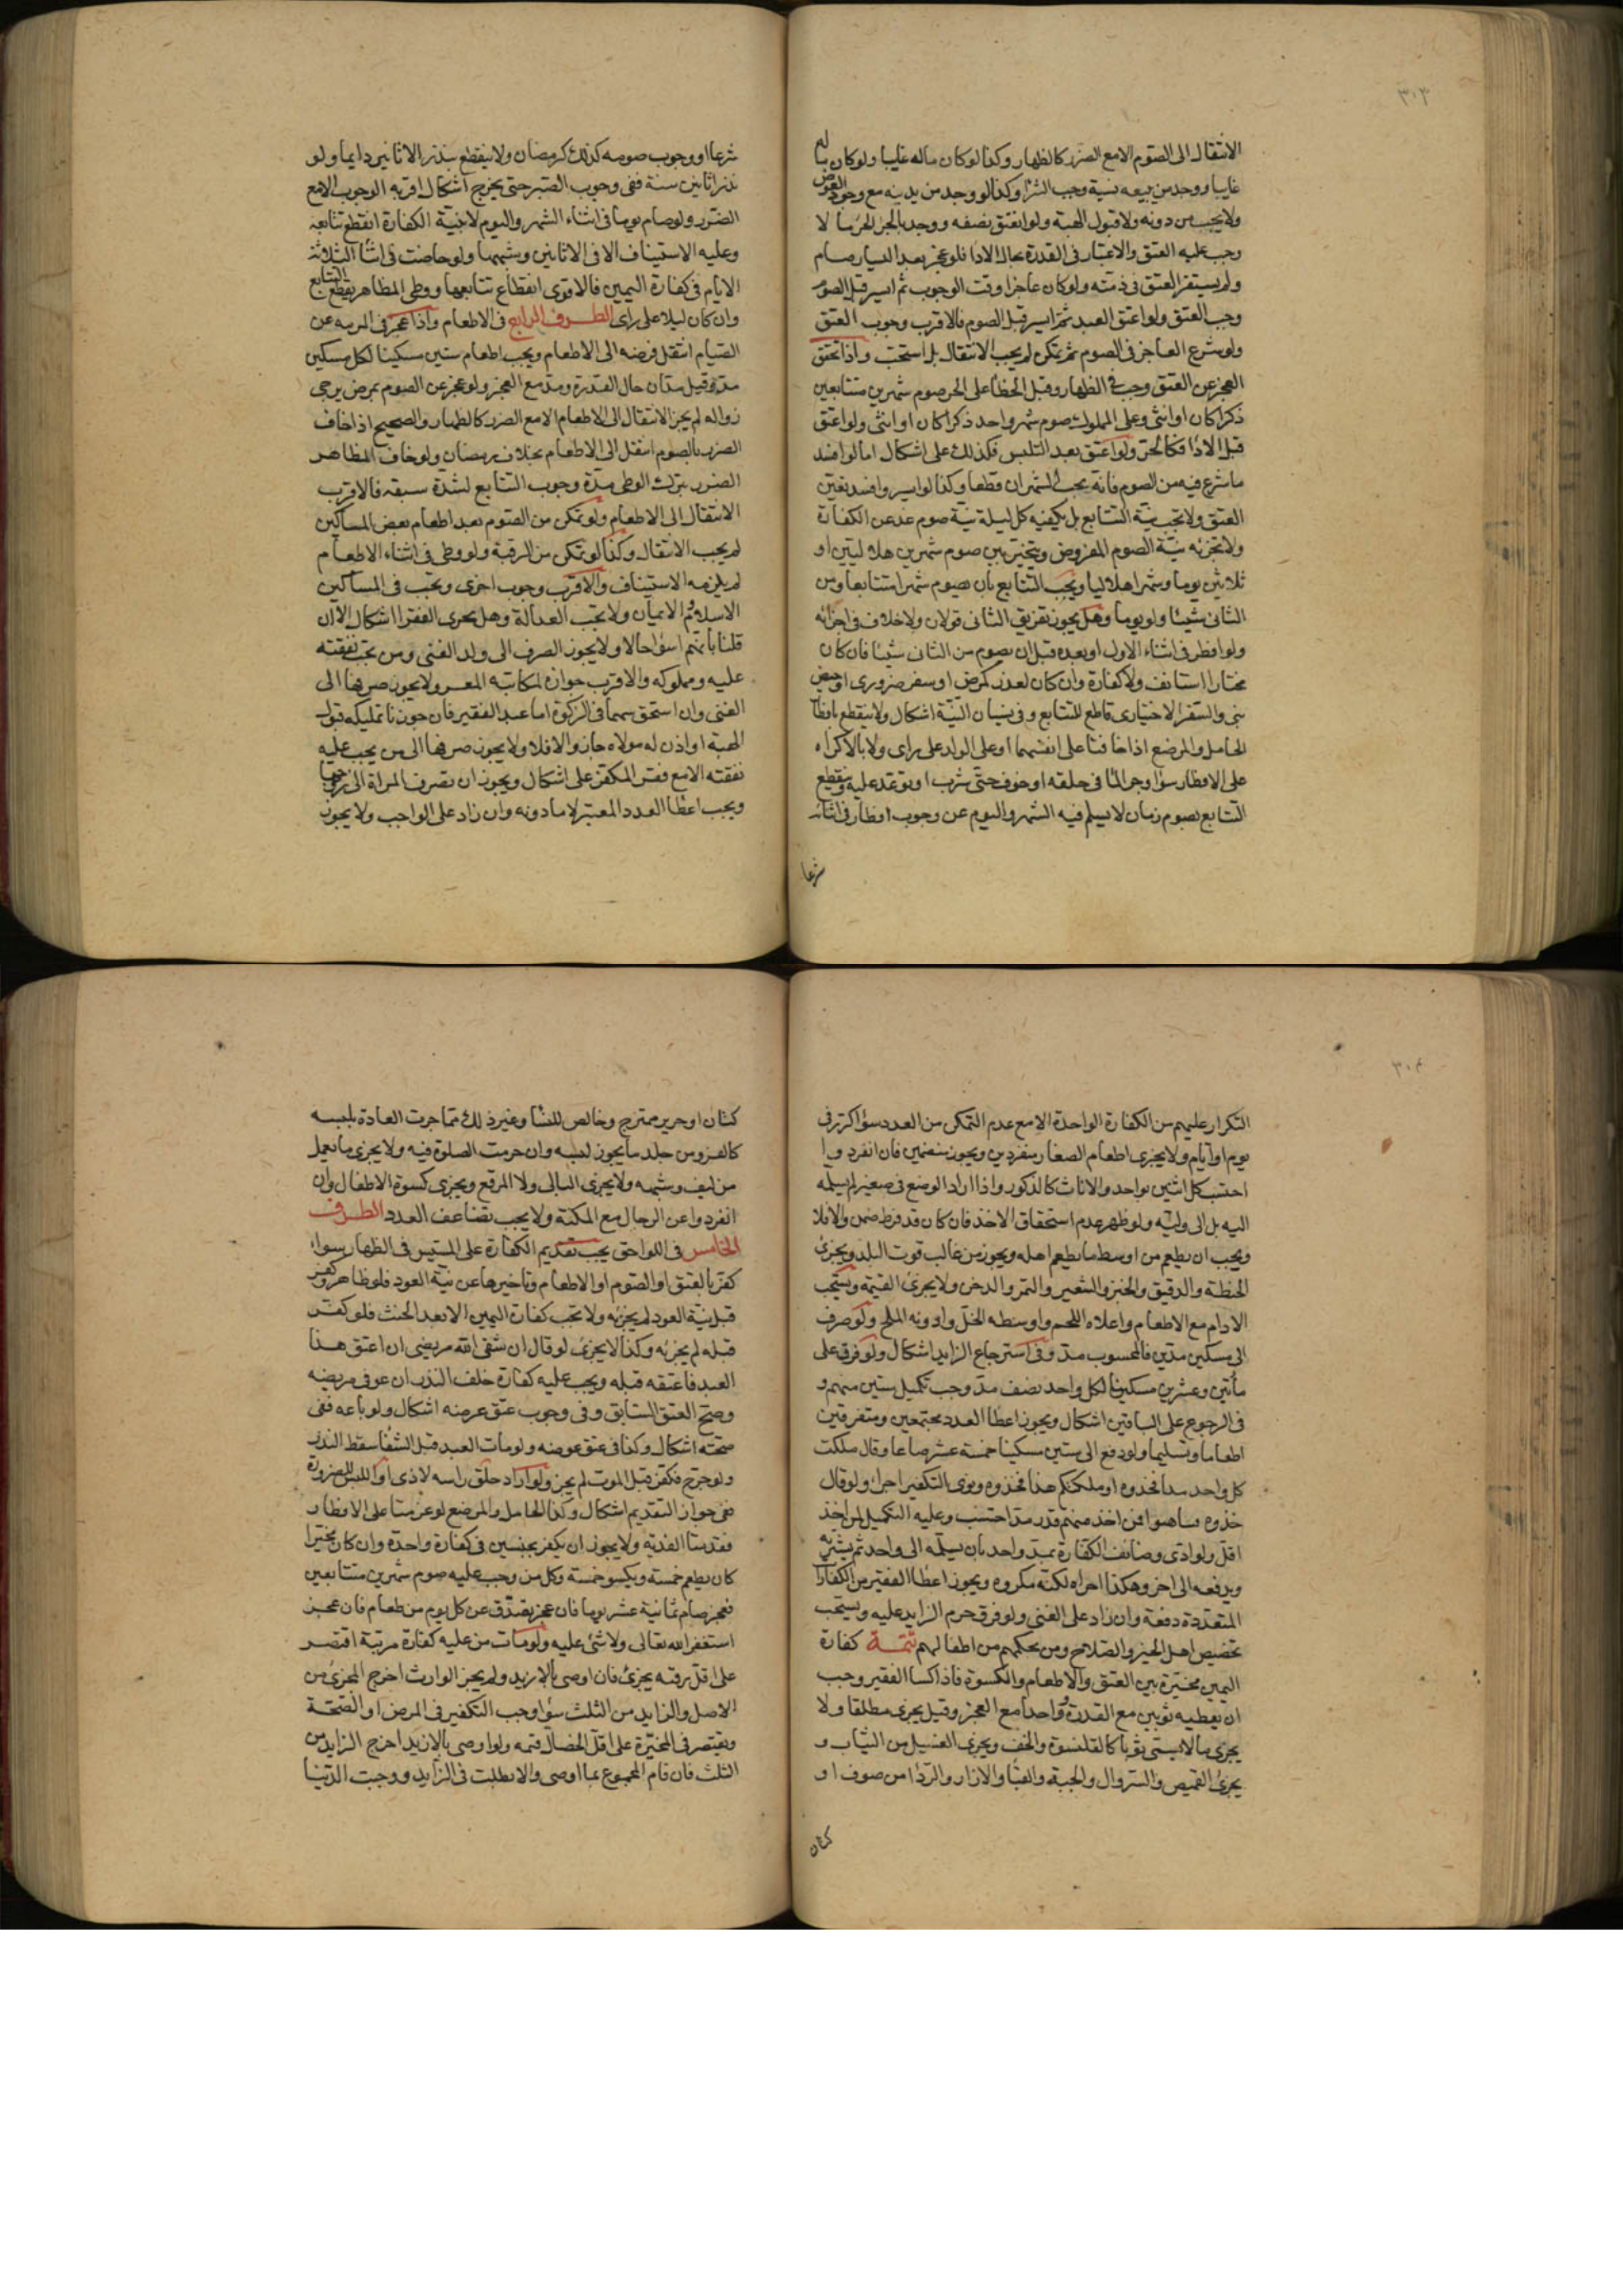 ٣٠٣
الانتقال الى الصوم الا مع الضرر كالظهار وكذا لو كان ماله غايبا ولو كان ماله
غايبا ووجد من يبيعه نسية وجب الشرا وكذا لو وجد من يدينه مع وجود العوض
ولا يجب من دونه ولا قبول الهبة ولو انعتق نصفه ووجد بالجزء الحر مالا
وجب عليه العتق والاعتبار في القدرة بحال الادا فلو عجز بعد اليسار صام
ولم يستقر العتق في ذمته ولو كان عاجزا وقت الوجوب ثم ايسر قبل الصوم
وجب العتق ولو اعتق العبد ثم ايسر قبل الصوم فالاقرب وجوب العتق
ولو شرع العاجز في الصوم ثم تمكن لم يجب الانتقال بل استحب واذا تحقق
العجز عن العتق وجب في الظهار وقتل الخطأ على الحر صوم شهرين متتابعين
ذكرا كان او انثى وعلى المملوك صوم شهر واحد ذكرا كان او انثى ولو اعتق
قبل الادا فكالحر ولو اعتق بعد التلبس فكذلك على اشكال اما لو افسد
ما شرع فيه من الصوم فانه يجب الشهران قطعا وكذا لو ايسر وافسد تعين
العتق ولا تجب نية التتابع بل يكفيه كل ليلة نية صوم غد عن الكفارة
ولا تجزئه نية الصوم المفروض ويتخير بين صوم شهرين هلاليين او
ثلاثين يوما وشهرا هلاليا ويجب التتابع بان يصوم شهرا متتابعا ومن
الثاني شيئا ولو يوما وهل يجوز تفريق الثاني قولان ولا خلاف في اجزائه
ولو افطر في اثناء الاول او بعده قبل ان يصوم من الثاني شيئا فان كان
مختارا استانف ولا كفارة وان كان لعذر كمرض او سفر ضروري او حيض
بنى والسفر الاختياري قاطع للتتابع وفي نسيان النية اشكال ولا ينقطع بافطار
الحامل والمرضع اذا خافتا على انفسهما او على الولد على راى ولا بالاكراه
على الافطار سوا وجر الماء في حلقه او خوف حتى شرب او توعد عليه وينقطع
التتابع بصوم زمان لا يسلم فيه الشهر واليوم عن وجوب افطار في اثنائه
شرعا
شرعا او وجوب صومه كذلك كرمضان ولا ينقطع بنذر الاثانين دايما ولو
نذر اثانين سنة ففي وجوب الصبر حتى يخرج اشكال اقربه الوجوب الا مع
الضرر ولو صام يوما في اثناء الشهر واليوم لا بنية الكفارة انقطع تتابعه
وعليه الاستيناف الا في الاثانين وشبهها ولو حاضت في اثنا الثلاثة
الايام في كفارة اليمين فالاقوى انقطاع تتابعها ووطى المظاهر يقطع التتابع
وان كان ليلا على راى الطرف الرابع في الاطعام واذا عجز في المرتبة عن
الصيام انتقل فرضه الى الاطعام ويجب اطعام ستين مسكينا لكل مسكين
مد وقيل مدان حال القدرة ومد مع العجز ولو عجز عن الصوم بمرض يرجى
زواله لم يجز الانتقال الى الاطعام الا مع الضرر كالظهار والصحيح اذا خاف
الضرر بالصوم انتقل الى الاطعام بخلاف رمضان ولو خاف المظاهر
الضرر بترك الوطى مدة وجوب التتابع لشدة شبقه فالاقرب
الانتقال الى الاطعام ولو تمكن من الصوم بعد اطعام بعض المساكين
لم يجب الانتقال وكذا لو تمكن من الرقبة ولو وطى في اثناء الاطعام
لم يلزمه الاستيناف والاقرب وجوب اخرى ويجب في المساكين
الاسلام والايمان ولا تجب العدالة وهل يجرى الفقرا اشكال الا ان
قلنا بانهم اسوا حالا ولا يجوز الصرف الى ولد الغنى ومن تجب نفقته
عليه ومملوكه والاقرب جوازه لمكاتبه المعسر ولا يجوز صرفها الى
الغنى وان استحق سهما في الزكوة اما عبد الفقير فان جوزنا تمليكه قبول
الهبة او اذن له مولاه جاز والا فلا ولا يجوز صرفها الى من يجب عليه
نفقته الا مع فقر المكفر على اشكال ويجوز ان تصرف المراة الى زوجها
ويجب اعطا العدد المعتبر لا ما دونه وان زاد على الواجب ولا يجوز
٣٠٤
التكرار عليهم من الكفارة الواحدة الا مع عدم التمكن من العدد سواء كرر في
يوم او ايام ولا يجزى اطعام الصغار منفردين ويجوز منضمين فان انفردوا
احتسب كل اثنين بواحد والاناث كالذكور واذا اراد الوضع في صغير لم يسلمه
اليه بل الى وليه ولو ظهر عدم استحقاق الاخذ فان كان قد فرط ضمن والا فلا
ويجب ان يطعم من اوسط ما يطعم اهله ويجوز من غالب قوت البلد ويجزئ
الحنطة والدقيق والخبز والشعير والتمر والدخن ولا يجزى القيمة ويستحب
الادام مع الاطعام واعلاه اللحم واوسطه الخل وادونه الملح ولو صرف
الى مسكين مدين فالمحسوب مد وفي استرجاع الزايد اشكال ولو فرق على
مأتين وعشرين مسكينا لكل واحد نصف مد وجب تكميل ستين منهم و
في الرجوع على الباقين اشكال ويجوز اعطا العدد مجتمعين ومتفرقين
اطعاما وتسليما ولو دفع الى ستين مسكينا خمسة عشر صاعا وقال ملكت
كل واحد مدا فخذوه او ملكتكم هذا فخذوه ونوى التكفير اجزأ ولو قال
خذوه فتناهبوا فمن اخذ منهم قدر مد احتسب وعليه التكميل لمن اخذ
اقل ولو ادى وضايف الكفارة بمد واحد بان يسلمه الى واحد ثم يشتريه
ويدفعه الى اخر وهكذا اجزاه لكنه مكروه ويجوز اعطا الفقير من الكفارات
المتعددة دفعة وان زاد على الغنى ولو فرق حرم الزايد عليه ويستحب
تخصيص اهل الخير والصلاح ومن بحكمهم من اطفالهم تتمة كفارة
اليمين مخيرة بين العتق والاطعام والكسوة فاذا كسا الفقير وجب
ان يعطيه ثوبين مع القدرة وواحدا مع العجز وقيل يجزى مطلقا ولا
يجزى ما لا يسمى ثوبا كالقلنسوة والخف ويجزى الغسيل من الثياب و
يجزئ القميص والسروال والجبة والقبا والازار والردا من صوف او
كتان
كتان او حرير ممتزج وخالص للنسا وغير ذلك مما جرت العادة بلبسه
كالفرو من جلد ما يجوز لبسه وان حرمت الصلوة فيه ولا يجزى ما يعمل
من ليف وشبهه ولا يجزى البالى ولا المرقع ويجزى كسوة الاطفال وان
انفردوا عن الرجال مع المكنة ولا يجب تضاعف العدد الطرف
الخامس في اللواحق يجب تقديم الكفارة على المسيس في الظهار سواء
كفر بالعتق او الصوم او الاطعام وتاخيرها عن نية العود فلو ظاهر وكفر
قبل نية العود لم يجزئه ولا تجب كفارة اليمين الا بعد الحنث فلو كفر
قبله لم يجزئه وكذا لا يجزئه لو قال ان شفى الله مريضى ان اعتق هذا
العبد فاعتقه قبله ويجب عليه كفارة خلف النذر ان عوفى مريضه
وصح العتق السابق وفى وجوب عتق عوضه اشكال ولو باعه ففى
صحته اشكال وكذا في عتق عوضه ولو مات العبد قبل الشفا سقط النذر
ولو جرح فكفر قبل الموت لم يجز ولو اراد حلق راسه لاذى او اللبس للضرورة
ففى جواز التقديم اشكال وكذا الحامل والمرضع لو عزمتا على الافطار
فقدمتا الفدية ولا يجوز ان يكفر بجنسين في كفارة واحدة وان كان مخيرا
كان يطعم خمسة ويكسو خمسة وكل من وجب عليه صوم شهرين متتابعين
فعجز صام ثمانية عشر يوما فان عجز تصدق عن كل يوم من طعام فان عجز
استغفر الله تعالى ولا شئ عليه ولو مات من عليه كفارة مرتبة اقتصر
على اقل رقبة يجزئ فان اوصى بالازيد ولم يجز الوارث اخرج المجزئ من
الاصل والزايد من الثلث سواء وجب التكفير في المرض او الصحة
ويقتصر في المخيرة على اقل الخصال قيمه ولو اوصى بالازيد اخرج الزايد من
الثلث فان قام المجموع بما اوصى والا بطلت في الزايد ووجبت الدنيا